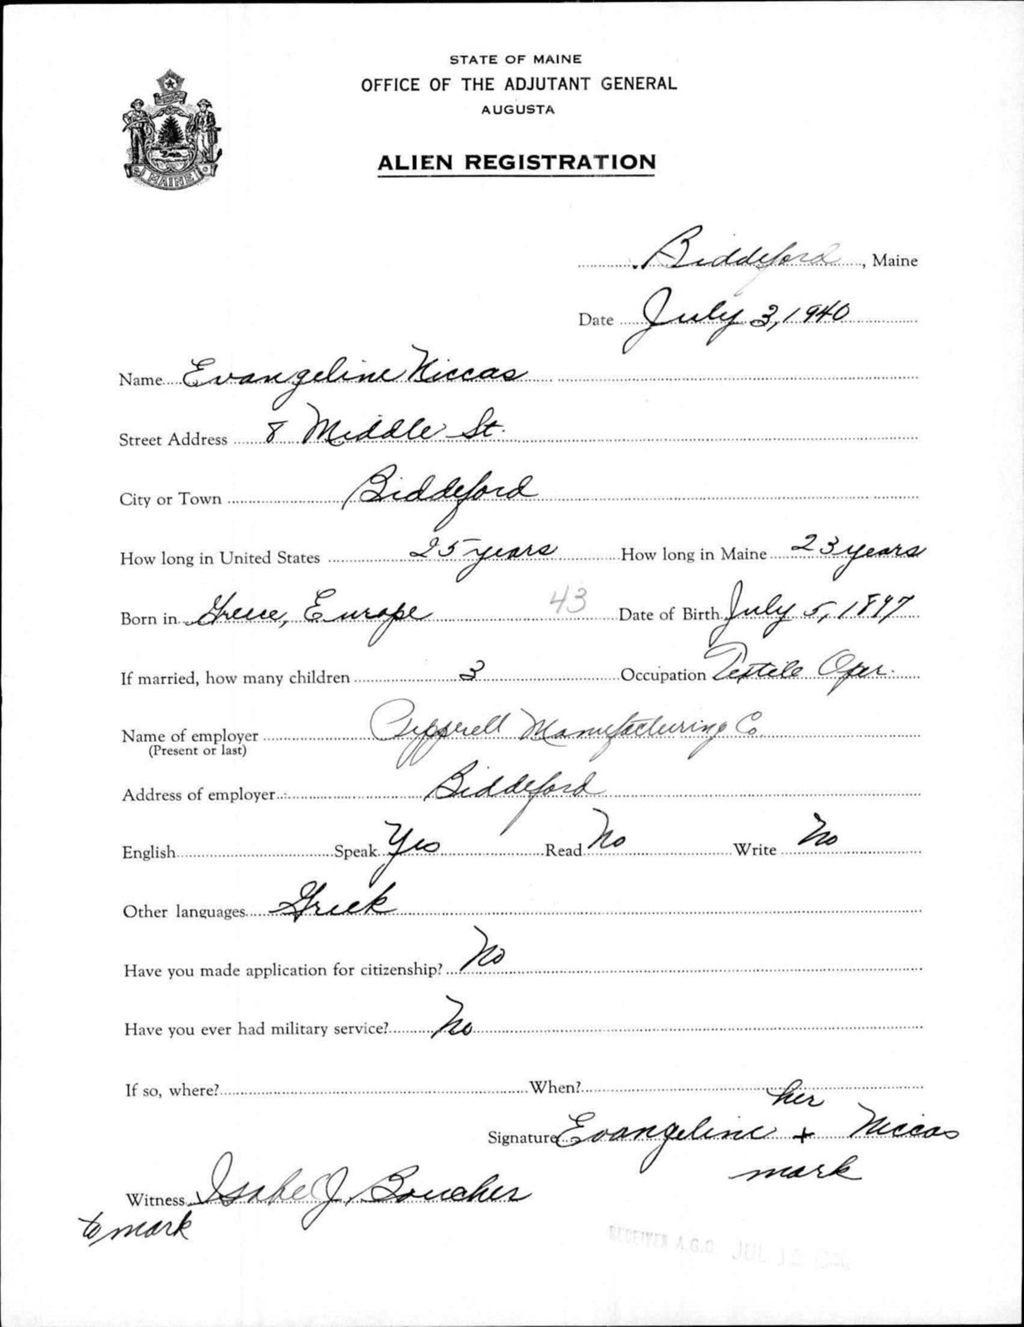 STATE OF MAINE
OFFICE OF THE ADJUTANT GENERAL
AUGUSTA
ALIEN REGISTRATION
MAINE
Biddeford, Maine
Date July 3, 1940
Name Evangeline Niccas
Street Address 8 Middle St.
City or Town Biddeford
How long in United States 25 years How long in Maine 23 years
Born in Greece, Europe 43 Date of Birth July 5, 1897
If married, how many children 3 Occupation Textile Oper.
Name of employer Pepperell Manufacturing Co
(Present or last)
Address of employer Biddeford
English Speak Yes Read No Write No
Other languages Greek
Have you made application for citizenship? No
Have you ever had military service? No
If so, where? When?
her
Signature Evangeline + Niccas
mark
Witness Isabel J. Boucher
to mark
RECEIVED A.G.O. JUL 12 1940